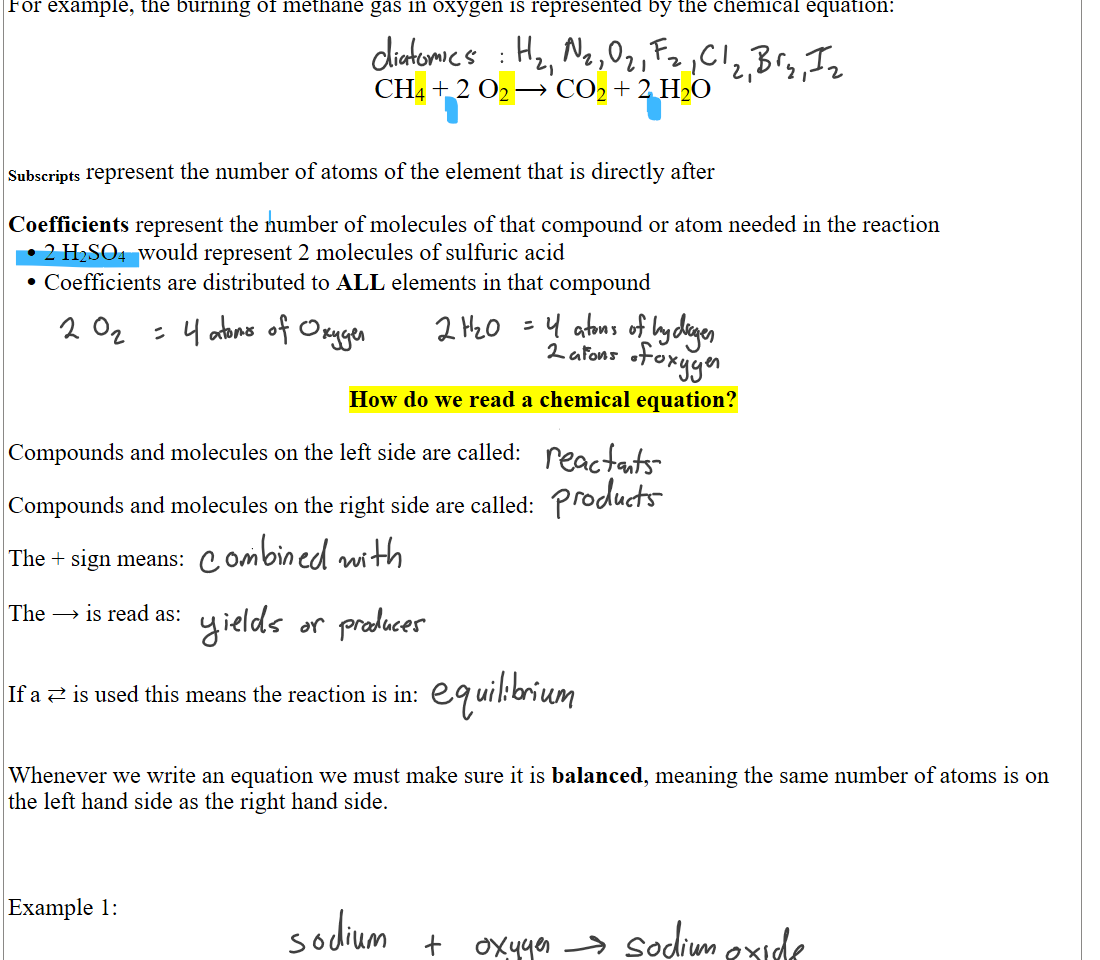 For example, the burning of methane gas in oxygen is represented by the chemical equation:
diatomics : H₂, N₂, O₂, F₂, Cl₂, Br₂, I₂
CH₄ + 2 O₂ ⟶ CO₂ + 2 H₂O
Subscripts represent the number of atoms of the element that is directly after
Coefficients represent the number of molecules of that compound or atom needed in the reaction
• 2 H₂SO₄ would represent 2 molecules of sulfuric acid
• Coefficients are distributed to ALL elements in that compound
2 O₂ = 4 atoms of Oxygen 2 H₂O = 4 atoms of hydrogen
2 atoms of oxygen
How do we read a chemical equation?
Compounds and molecules on the left side are called: reactants
Compounds and molecules on the right side are called: products
The + sign means: combined with
The ⟶ is read as: yields or produces
If a ⇄ is used this means the reaction is in: equilibrium
Whenever we write an equation we must make sure it is balanced, meaning the same number of atoms is on
the left hand side as the right hand side.
Example 1:
sodium + oxygen → sodium oxide